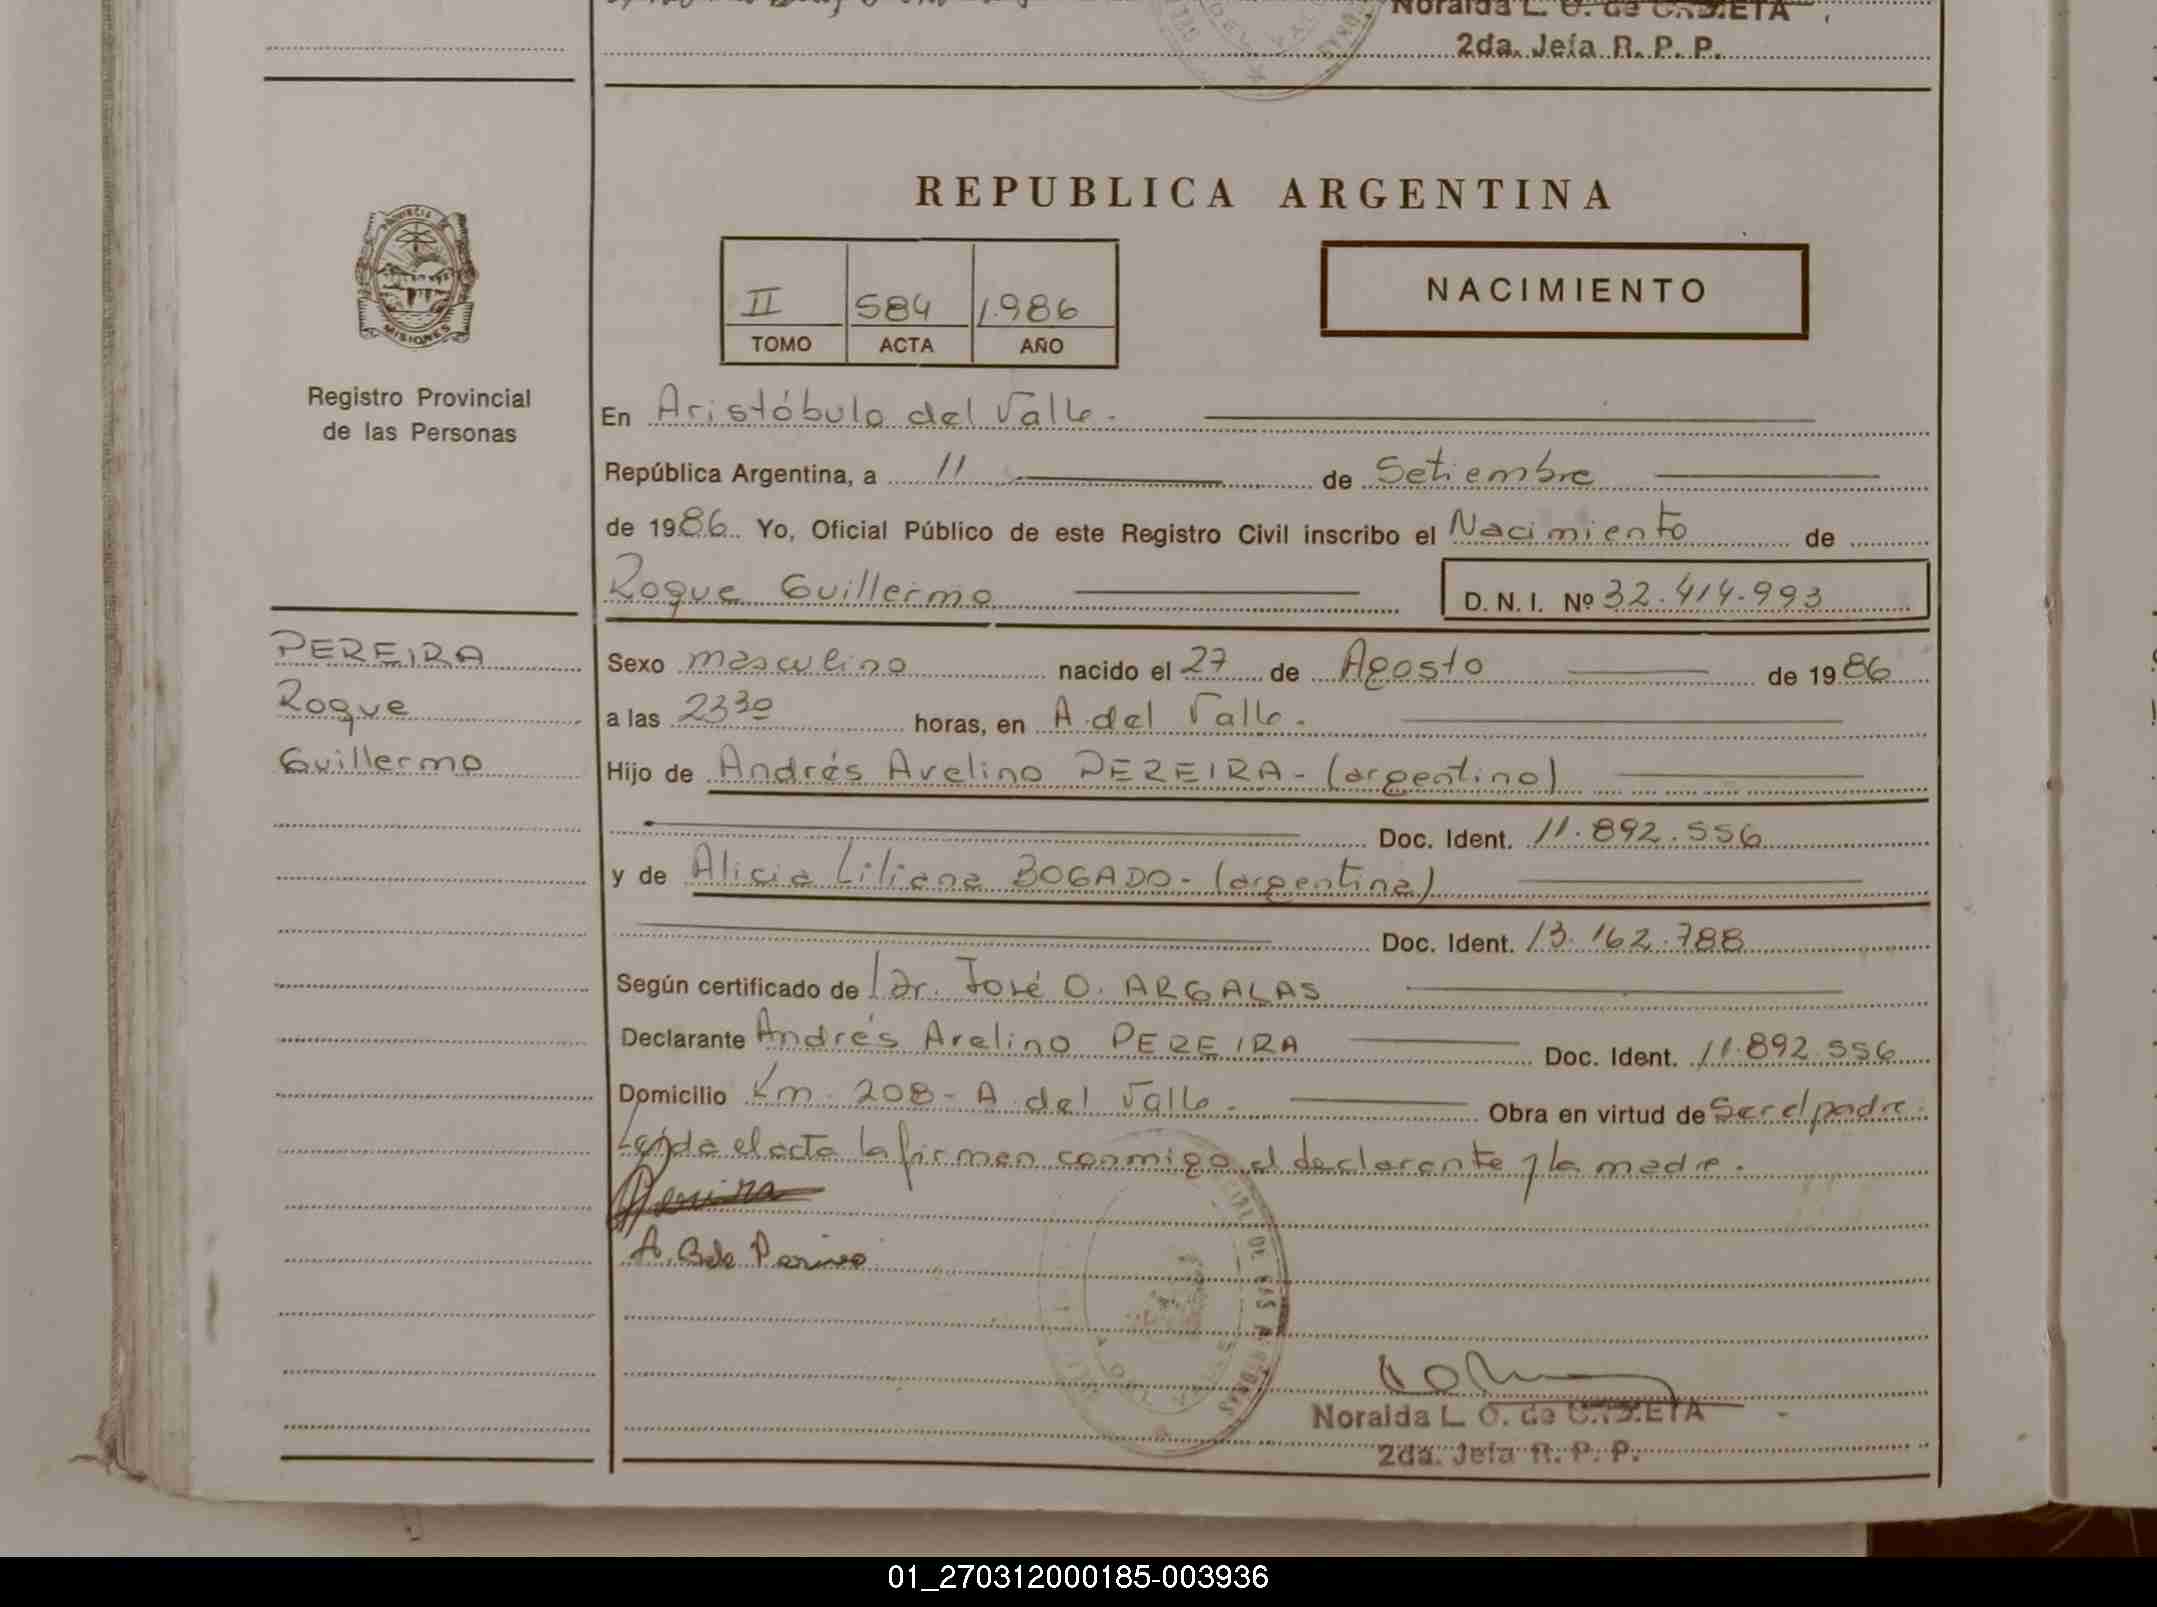 Noralda L. O. de
2da. Jefa R. P. P.
REPUBLICA ARGENTINA
II 584 1.986
TOMO ACTA AÑO
NACIMIENTO
MISIONES
Registro Provincial
de las Personas
En Aristóbulo del Valle.
República Argentina, a 11 de Setiembre
de 1986 Yo, Oficial Público de este Registro Civil inscribo el Nacimiento de
Roque Guillermo D. N. I. Nº 32.414.993
PEREIRA
Roque
Guillermo
Sexo masculino nacido el 27 de Agosto de 1986
a las 2330 horas, en A. del Valle.
Hijo de Andrés Avelino PEREIRA - (argentino)
Doc. Ident. 11.892.556
y de Alicia Liliana BOGADO - (argentina)
Doc. Ident. 13.162.788
Según certificado de Dr. José O. ARGALAS
Declarante Andrés Avelino PEREIRA Doc. Ident. 11.892.556
Domicilio Km. 208 - A. del Valle. Obra en virtud de Ser el padre.
Leída el acta la firman conmigo el declarante y la madre.
Pereira
A. B de Pereira
Noralda L. O. de
2da. Jefa R. P. P.
01_270312000185-003936